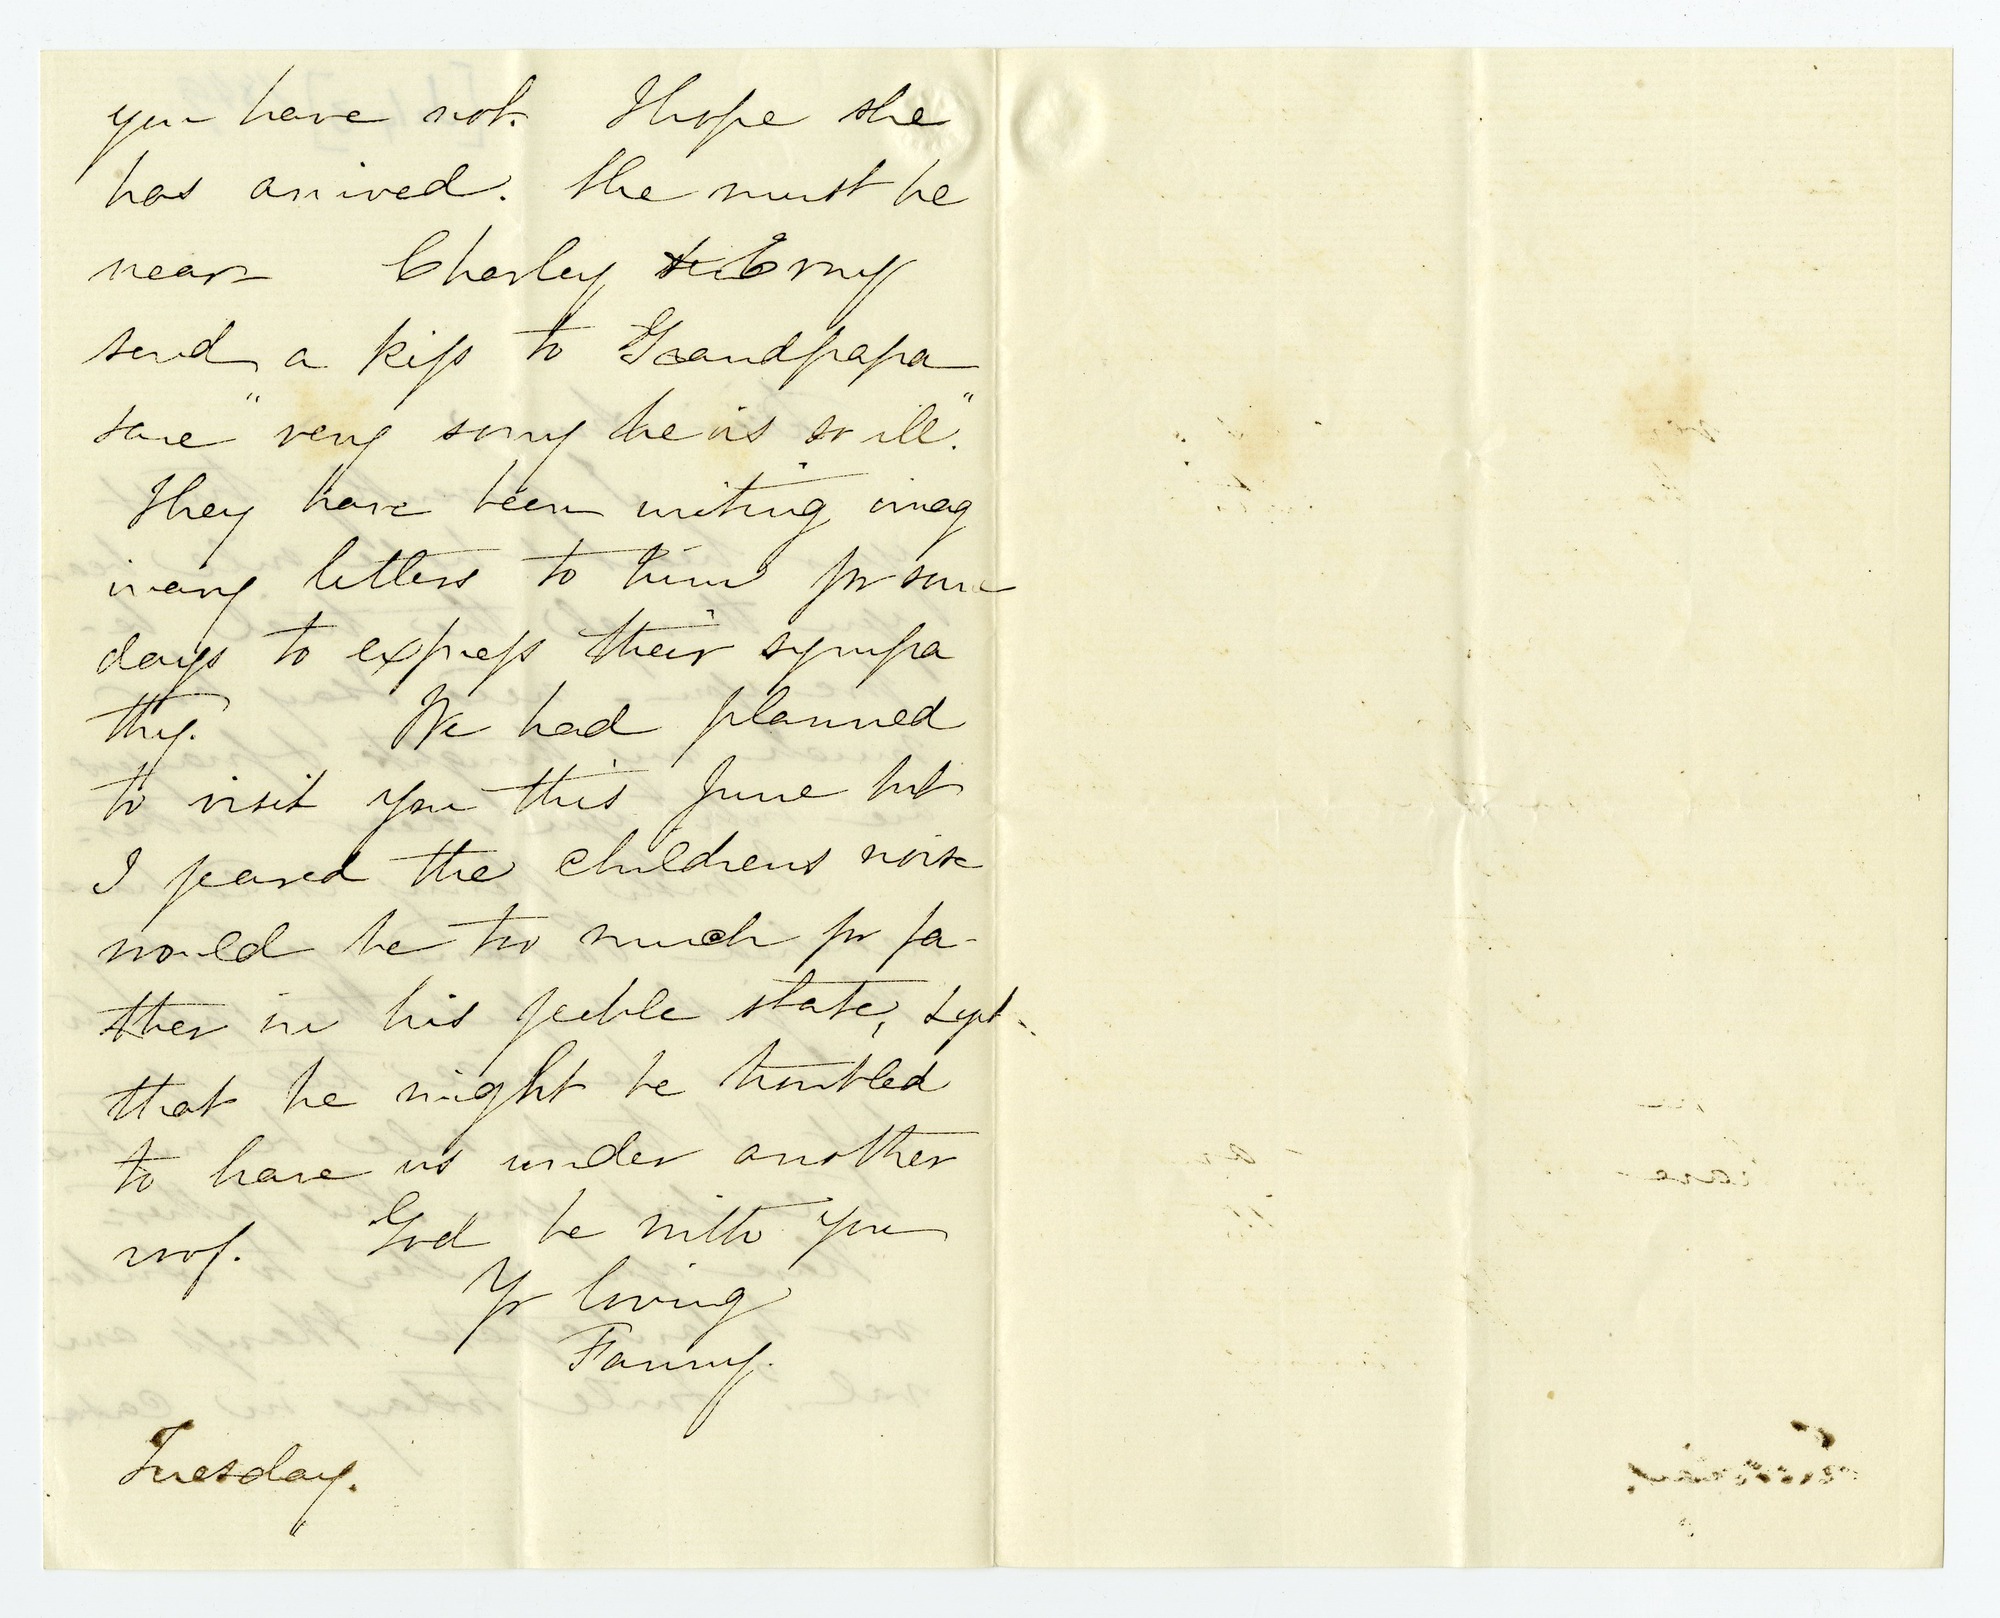 you have not. I hope she
has arrived. She must be
near Charley & Erny
send a kiss to Grandpapa
"very sorry he is so ill."
They have been writing imag
inary letters to him for some
days to express their sympa
thy. We had planned
to visit you this June but
I feared the childrens noise
would be too much for fa-
ther in his feeble state, &
that he might be troubled
to have us under another
roof. God be with you
Yr loving
Fanny.
Tuesday.